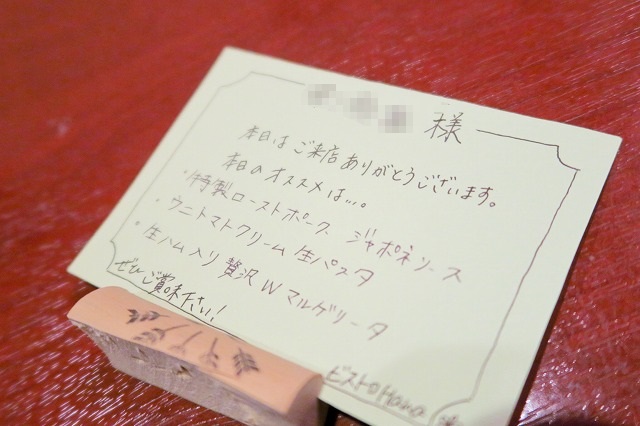 様
本日はご来店ありがとうございます。
本日のオススメは...。
・特製ローストポーク ジャポネソース
・ウニトマトクリーム生パスタ
・生ハム入り贅沢Wマルゲリータ
ぜひご賞味下さい!
ビストロHana